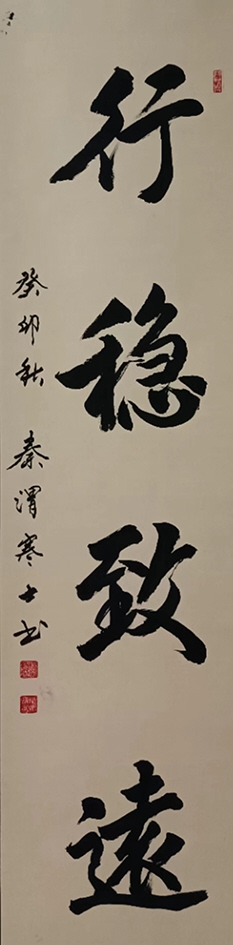 行稳致遠
癸卯秋 秦渭寒士书